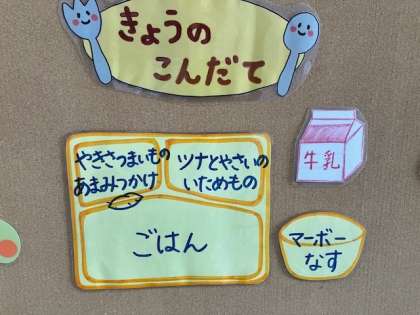 きょうの
こんだて
やきさつまいもの
あまみつかけ
ツナとやさいの
いためもの
牛乳
ごはん
マーボー
なす